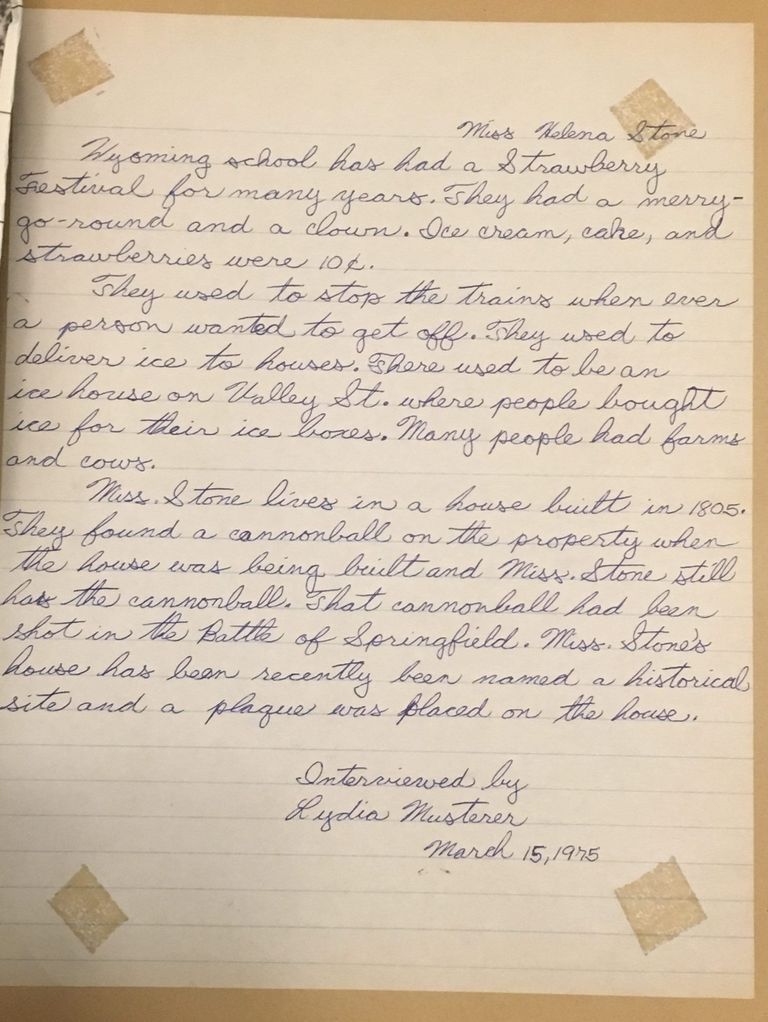 Miss Helena Stone
Wyoming school has had a Strawberry
Festival for many years. They had a merry-
go-round and a clown. Ice cream, cake, and
strawberries were 10¢.
They used to stop the trains when ever
a person wanted to get off. They used to
deliver ice to houses. There used to be an
ice house on Valley St. where people bought
ice for their ice boxes. Many people had farms
and cows.
Miss. Stone lives in a house built in 1805.
They found a cannonball on the property when
the house was being built and Miss. Stone still
has the cannonball. That cannonball had been
shot in the Battle of Springfield. Miss. Stone's
house has been recently been named a historical
site and a plaque was placed on the house.
Interviewed by
Lydia Musterer
March 15, 1975